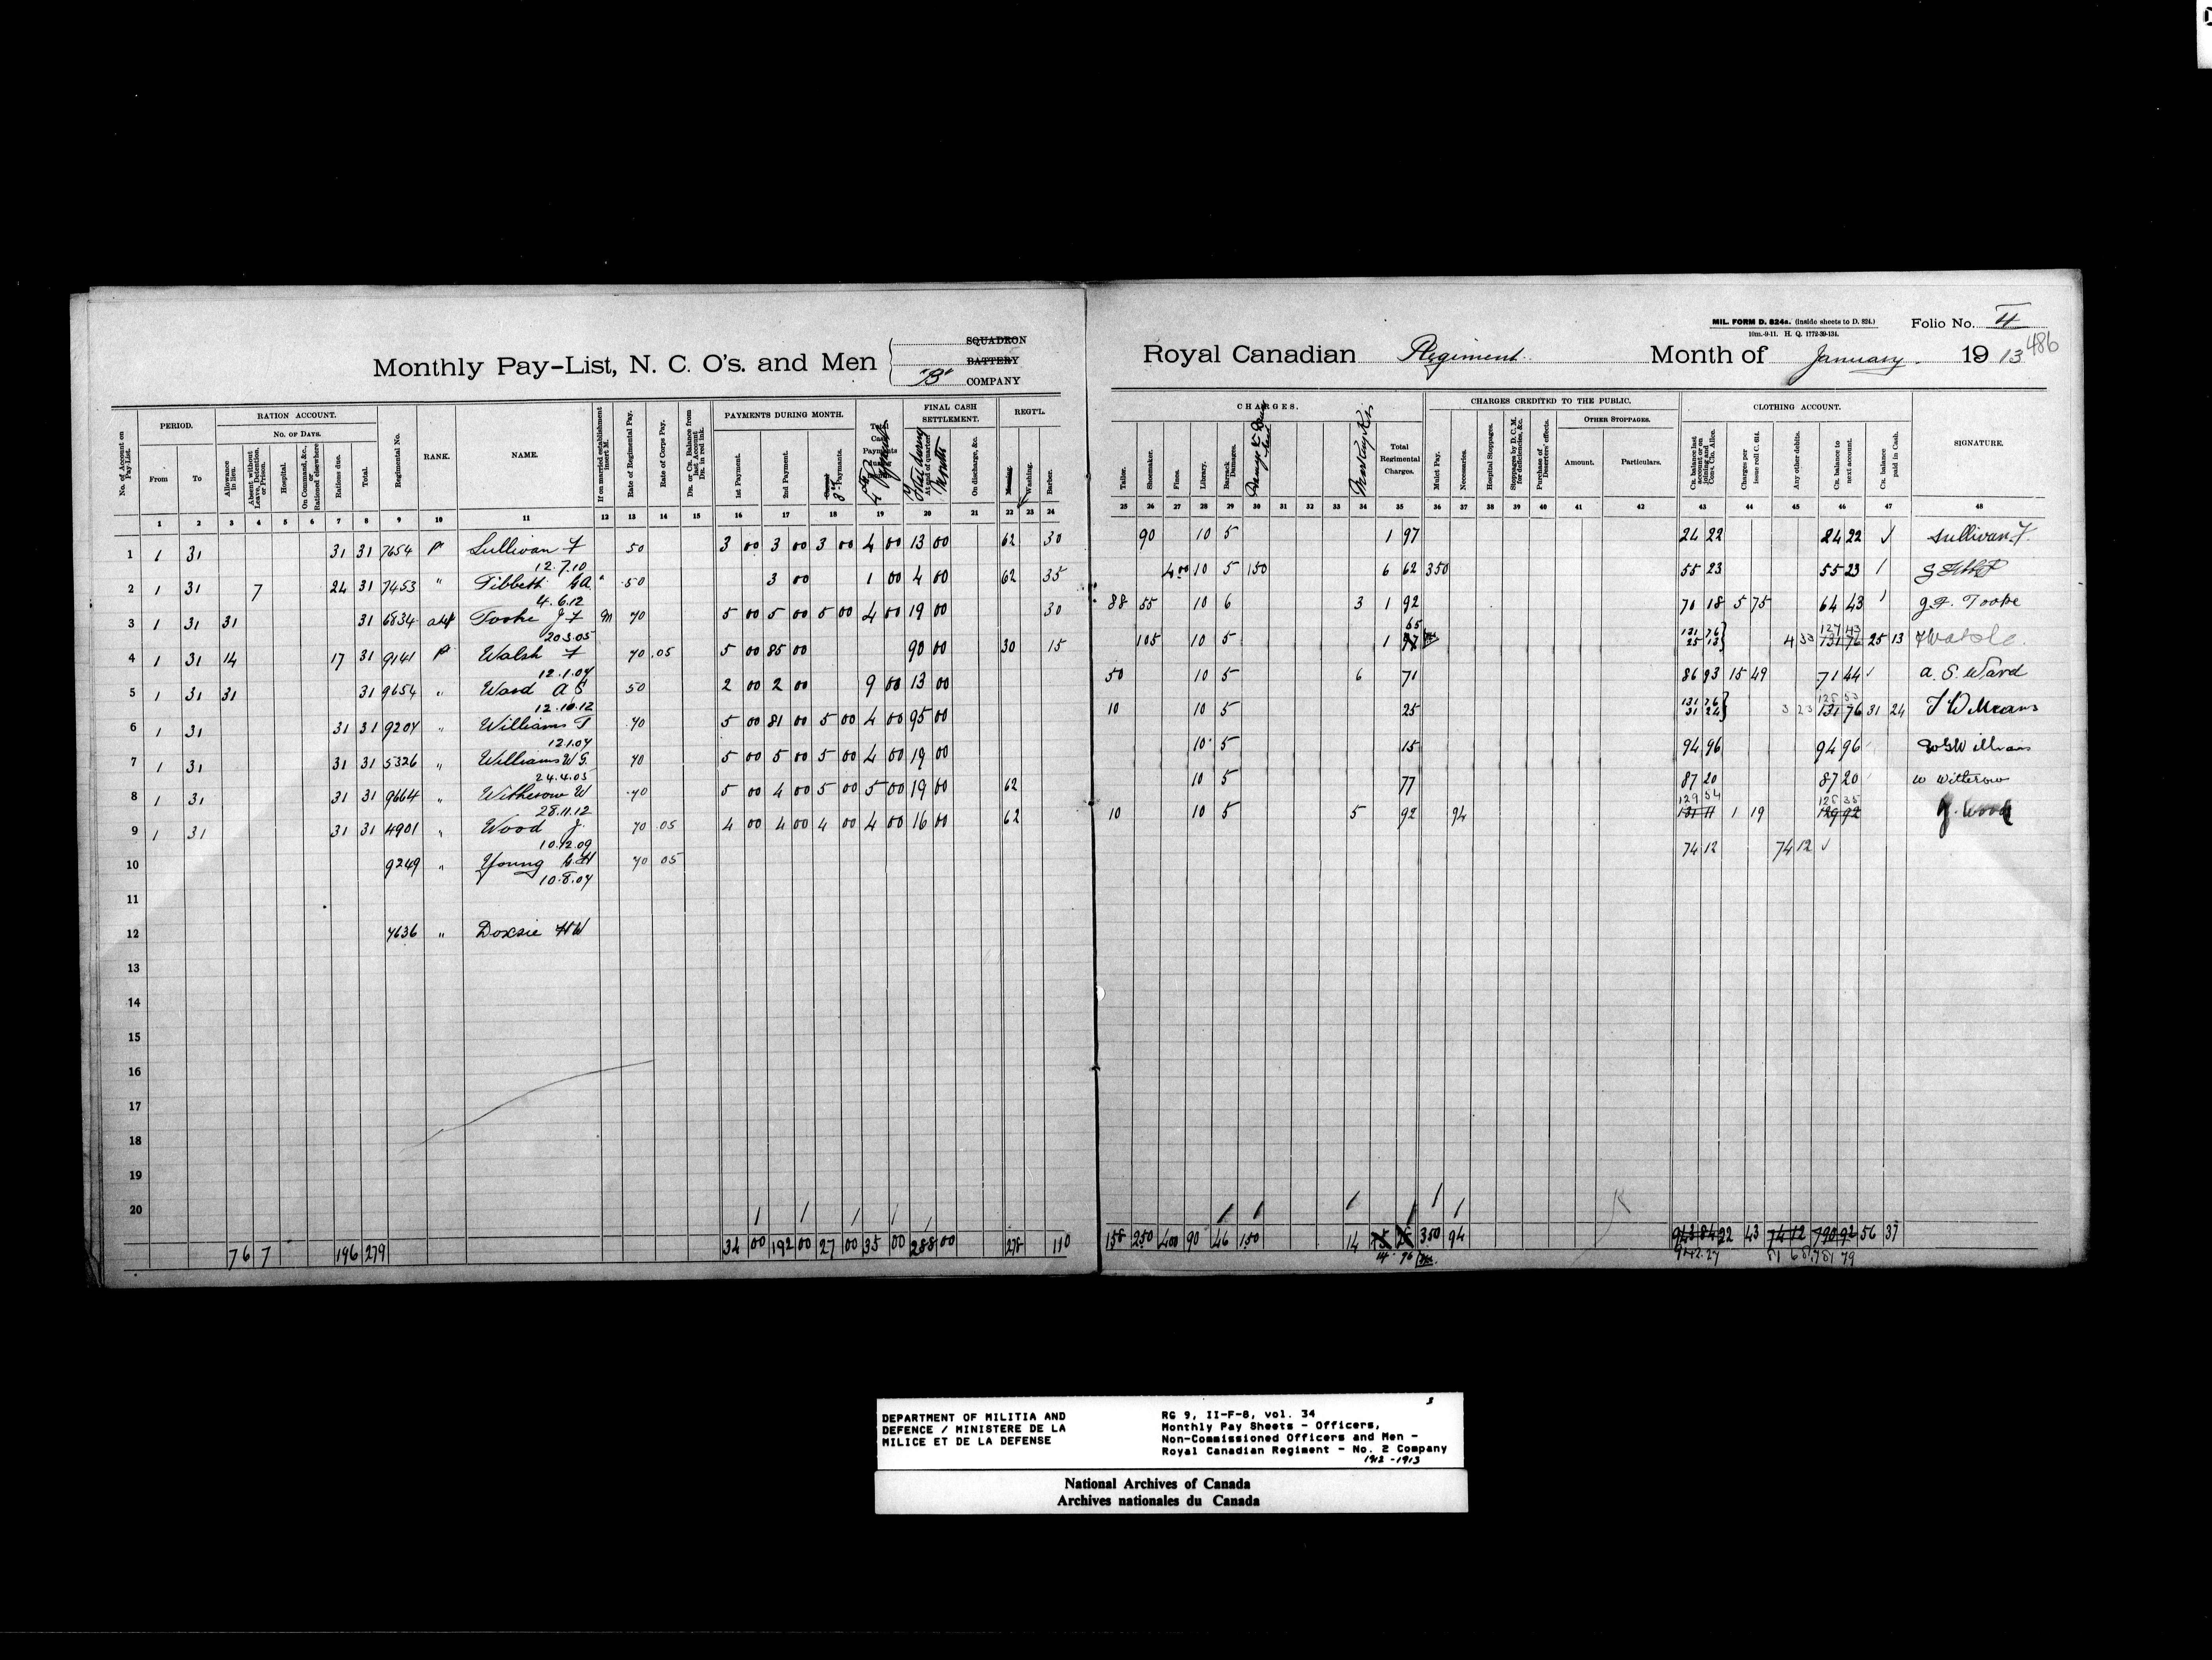 Monthly Pay-List, N. C. O's. and Men
SQUADRON
BATTERY
"B" COMPANY
Royal Canadian Regiment.
MIL. FORM D. 824a. (Inside sheets to D. 824.)
10m.-9-11. H. Q. 1772-39-134.
Folio No.
486
Month of January. 1913
No. of Account on Pay-List.
PERIOD.
From To
RATION ACCOUNT.
No. of Days.
Allowance in lieu.
Absent without Leave, Detention, or Prison.
Hospital.
On Command, &c., or Rationed elsewhere
Rations due.
Total.
Regimental No.
RANK.
NAME.
If on married establishment insert M.
Rate of Regimental Pay.
Rate of Corps Pay.
Dr. or Cr. Balance from last Account Dr. in red ink.
PAYMENTS DURING MONTH.
1st Payment.
2nd Payment.
3rd Payments.
FINAL CASH SETTLEMENT.
At end of quarter
On discharge, &c.
REGT'L.
Messing.
Washing.
Barber.
CHARGES.
Tailor.
Shoemaker.
Fines.
Library.
Barrack Damages.
Total Regimental Charges.
CHARGES CREDITED TO THE PUBLIC.
Mulct Pay.
Necessaries.
Hospital Stoppages.
Stoppages by D.C.M. for deficiencies, &c.
Purchase of Deserters' effects.
OTHER STOPPAGES.
Amount.
Particulars.
CLOTHING ACCOUNT.
Cr. balance last account or on joining and Cons. Clo. Allce.
Charges per issue roll C. 614.
Any other debits.
Cr. balance to next account.
Cr. balance paid in Cash.
SIGNATURE.
1 2 3 4 5 6 7 8 9 10 11 12 13 14 15 16 17 18 19 20 21 22 23 24
25 26 27 28 29 30 31 32 33 34 35 36 37 38 39 40 41 42 43 44 45 46 47 48
1 1 31 31 31 7654 P Sullivan F 50 3 00 3 00 3 00 4 00 13 00 62 30 90 10 5 1 97 24 22 24 22 Sullivan F.
12.7.10
2 1 31 7 24 31 7453 " Tibbett GA 50 3 00 1 00 4 00 62 35 4 00 10 5 150 6 62 350 55 23 55 23
4.6.12
3 1 31 31 31 6834 Tooke J F M 70 5 00 5 00 5 00 4 00 19 00 30 88 55 10 6 3 1 92 70 18 5 75 64 43 J. F. Tooke
20.3.05
4 1 31 14 17 31 9141 P Walsh F 70 .05 5 00 85 00 90 00 30 15 105 10 5 1 65 131 76 25 13 4 33 127 43 131 76 25 13
12.1.07
5 1 31 31 31 9654 " Ward A S 50 2 00 2 00 9 00 13 00 50 10 5 6 71 86 93 15 49 71 44 A. S. Ward
12.10.12
6 1 31 31 31 9204 " Williams T 70 5 00 81 00 5 00 4 00 95 00 10 10 5 25 131 76 31 24 3 23 128 53 131 76 31 24
12.1.07
7 1 31 31 31 5326 " Williams W G. 70 5 00 5 00 5 00 4 00 19 00 10 5 15 94 96 94 96 W G Williams
24.4.05
8 1 31 31 31 9664 " Witherow W 70 5 00 4 00 5 00 5 00 19 00 62 10 5 77 87 20 87 20 W Witherow
28.11.12
9 1 31 31 31 4901 " Wood J. 70 .05 4 00 4 00 4 00 4 00 16 00 62 10 10 5 5 92 94 129 54 131 11 1 19 128 35 129 92 J. Wood
10.12.09
10 9249 " Young G H 70 05 74 12 74 12
10.8.07
11
12 7636 " Doxsie H W
13
14
15
16
17
18
19
20
76 7 196 279 34 00 192 00 27 00 35 00 288 00 278 110 158 250 400 90 46 150 14 350 94 943 84 22 43 74 12 790 92 56 37
14 96 942.27 81 68 781 79
DEPARTMENT OF MILITIA AND
DEFENCE / MINISTERE DE LA
MILICE ET DE LA DEFENSE
3
RG 9, II-F-8, vol. 34
Monthly Pay Sheets - Officers,
Non-Commissioned Officers and Men -
Royal Canadian Regiment - No. 2 Company
1912 - 1913
National Archives of Canada
Archives nationales du Canada